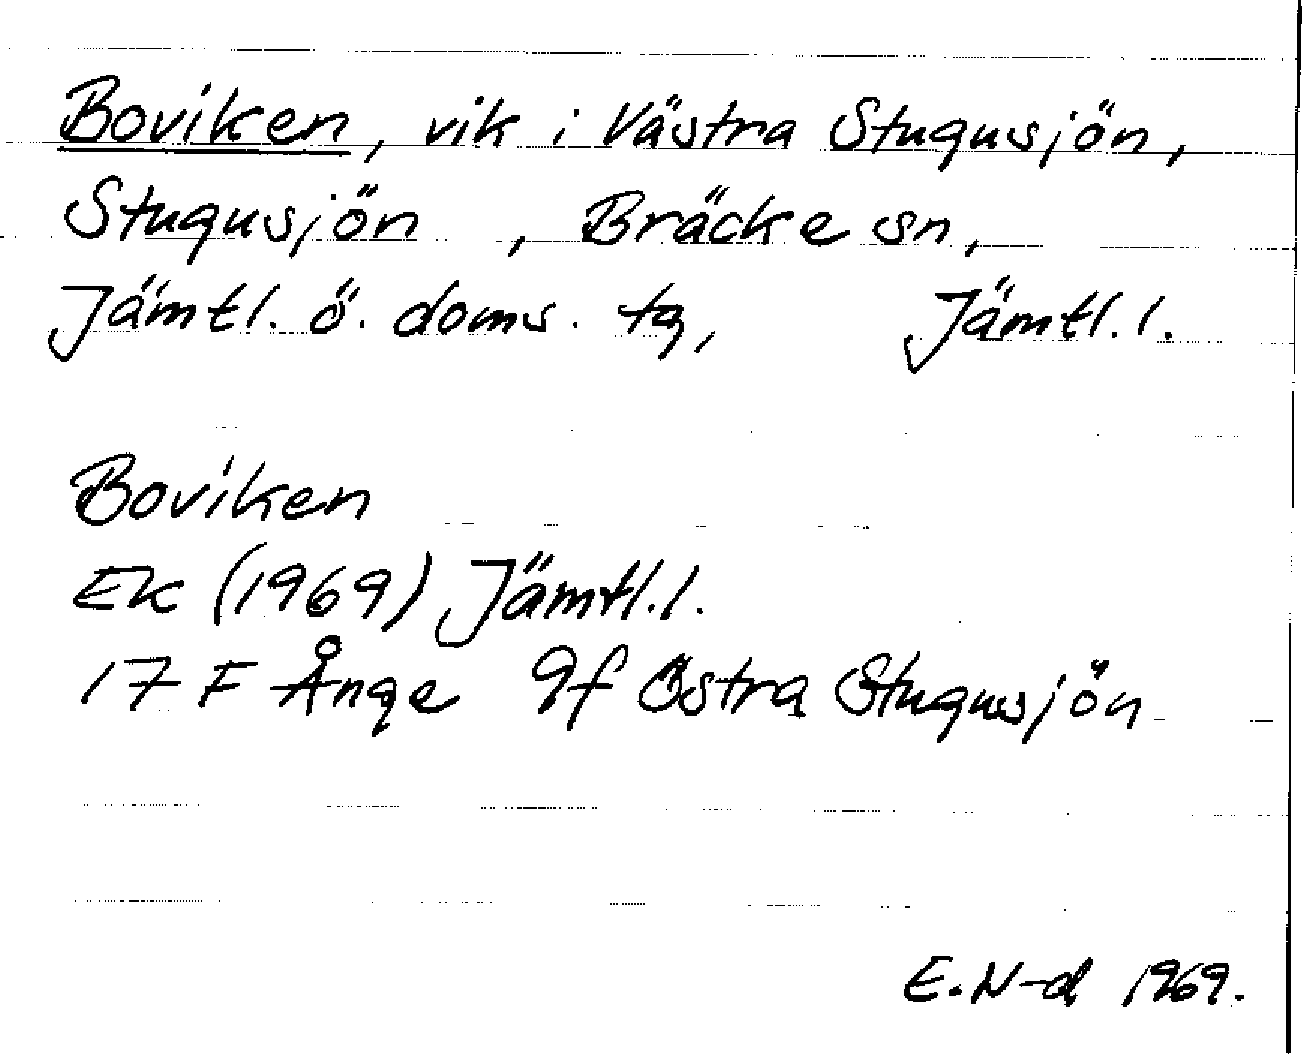 Boviken, vik i Västra Stugusjön,
Stugusjön , Bräcke sn,
Jämtl. ö. doms. tg, Jämtl. l.
Boviken
Ek (1969) Jämtl. l.
17 F Ånge 9f Östra Stugusjön
E. N-d 1969.